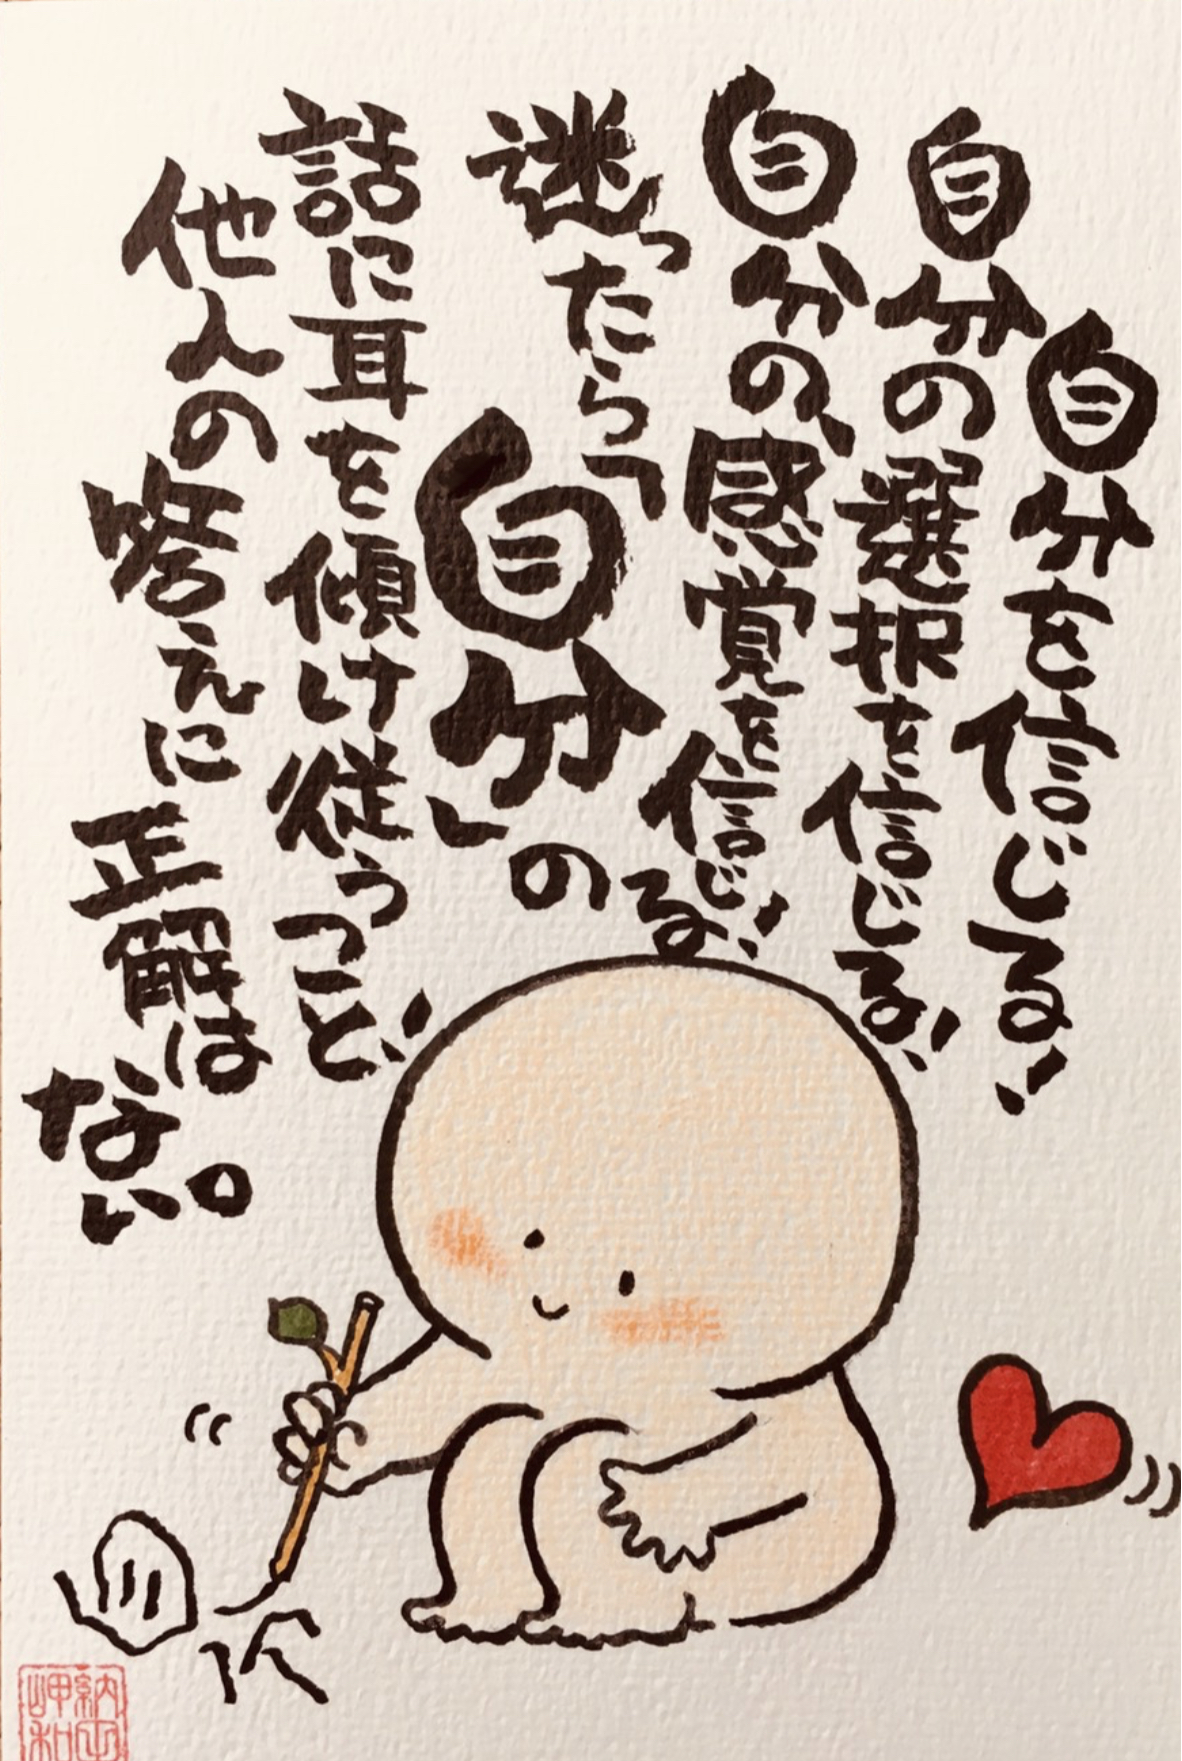 自分を信じる!
自分の選択を信じる!
自分の感覚を信じる!
迷ったら、「自分」の
話に耳を傾け従うこと!
他人の答えに正解は
ない。
自分